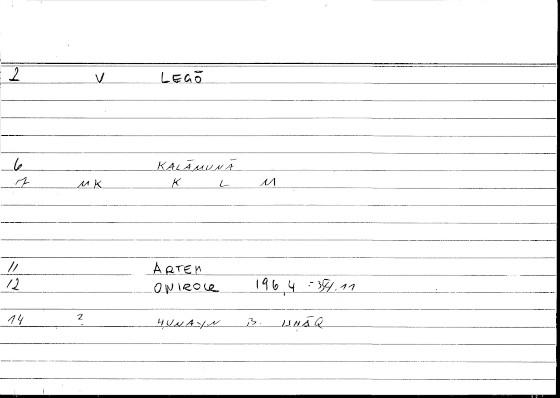 2 V LEGŌ
6 KALĀMUNĀ
7 MK K L M
11 ARTEM
12 ONIROCR 196,4
14 ? HUNAYN B. ISHĀQ